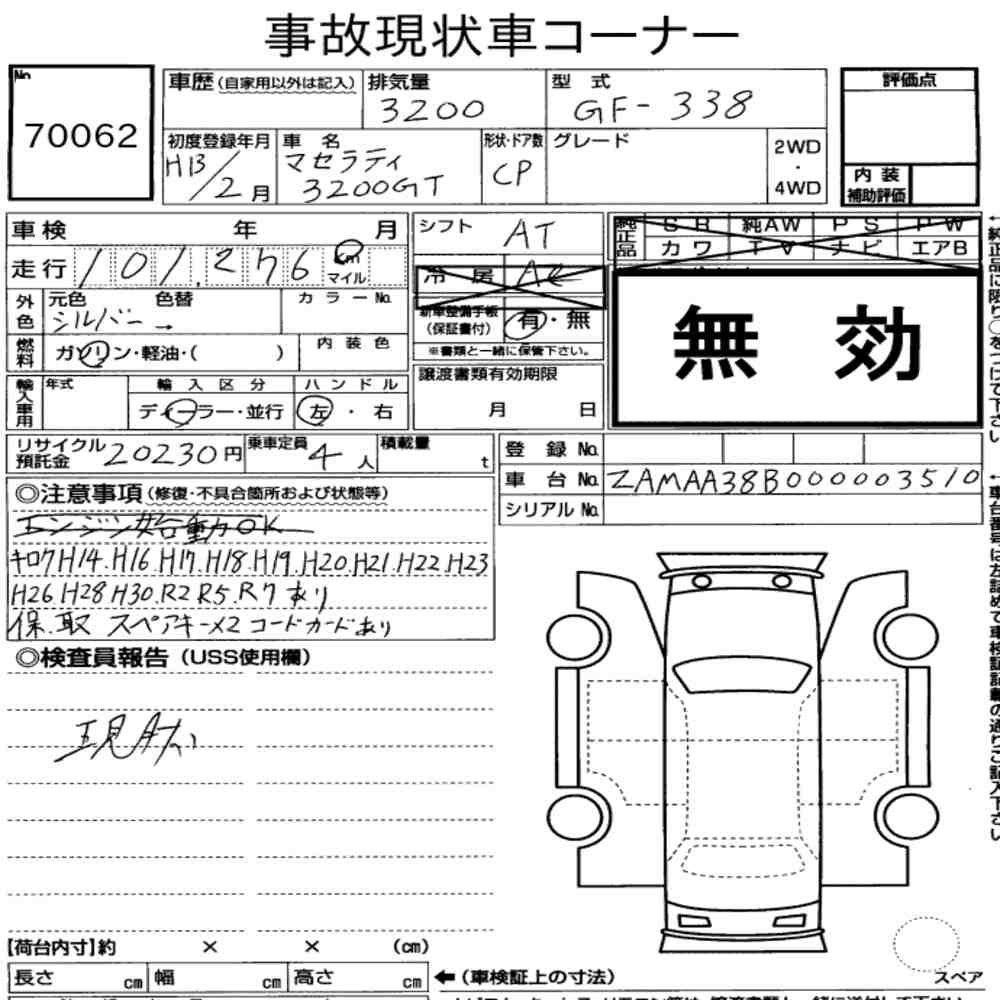 事故現状車コーナー
No.
70062
車歴(自家用以外は記入)
排気量
3200
型式
GF-338
評価点
初度登録年月
H13/2月
車名
マセラティ
3200GT
形状・ドア数
CP
グレード
2WD
・
4WD
内装
補助評価
車検 年 月
シフト
AT
純正品
SR 純AW PS PW
カワ TV ナビ エアB
走行
101,276
km
マイル
冷房
AC
無効
外色
元色 色替
シルバー→
カラーNo.
新車整備手帳
(保証書付)
有・無
※書類と一緒に保管下さい。
燃料
ガソリン・軽油・( )
内装色
輸入車用
年式
輸入区分
ディーラー・並行
ハンドル
左・右
譲渡書類有効期限
月 日
リサイクル
預託金
20230円
乗車定員
4人
積載量
t
登録No.
車台No.
ZAMAA38B000003510
シリアルNo.
◎注意事項(修復・不具合箇所および状態等)
エンジン始動OK
キロクH14.H16.H17.H18.H19.H20.H21.H22.H23
H26.H28.H30.R2.R5.R7あり
保.取 スペアキー×2 コードカードあり
◎検査員報告(USS使用欄)
現状
【荷台内寸】約 × × (cm)
長さ cm 幅 cm 高さ cm
←(車検証上の寸法)
スペア